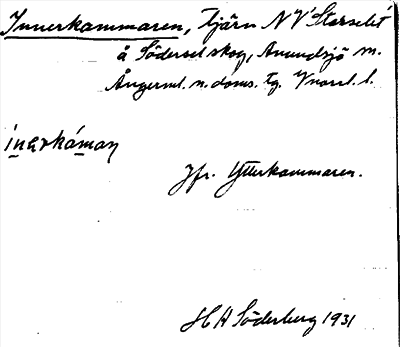 Innerkammaren, tjärn NV Storselet
å Södersel skog, Anundsjö sn.
Ångerml. n. doms. tg. Vnorrl. l.
inarkáman
Jfr. Ytterkammaren.
HA Söderberg 1931